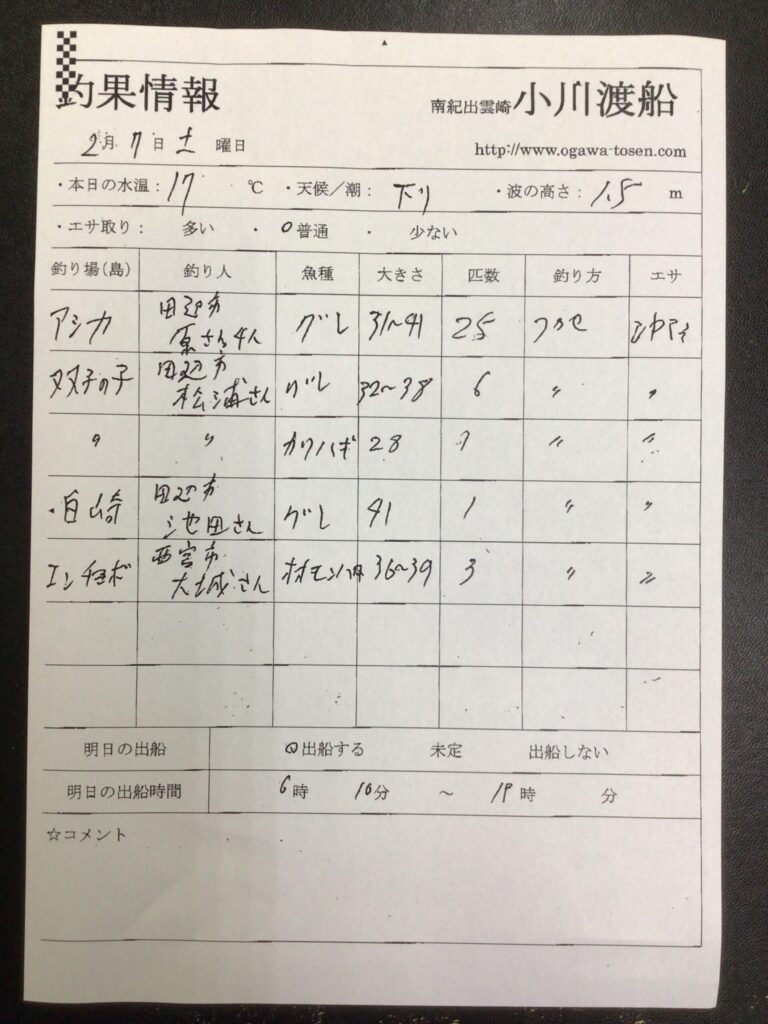 釣果情報
南紀出雲崎小川渡船
2月7日土曜日
http://www.ogawa-tosen.com
・本日の水温：17 ℃ ・天候／潮：下り ・波の高さ：1.5 m
・エサ取り： 多い ・ 普通 ・ 少ない
釣り場(島) 釣り人 魚種 大きさ 匹数 釣り方 エサ
アシカ 田辺市 原さん4人 グレ 31〜41 25 フカセ
双子の子 田辺市 松浦さん グレ 32〜38 6 〃 〃
〃 〃 カワハギ 28 1 〃 〃
白崎 田辺市 池田さん グレ 41 1 〃 〃
エンチョボ 西宮市 大城さん オオモンハタ 36〜39 3 〃 〃
明日の出船 出船する 未定 出船しない
明日の出船時間 6時 10分 〜 時 分
☆コメント